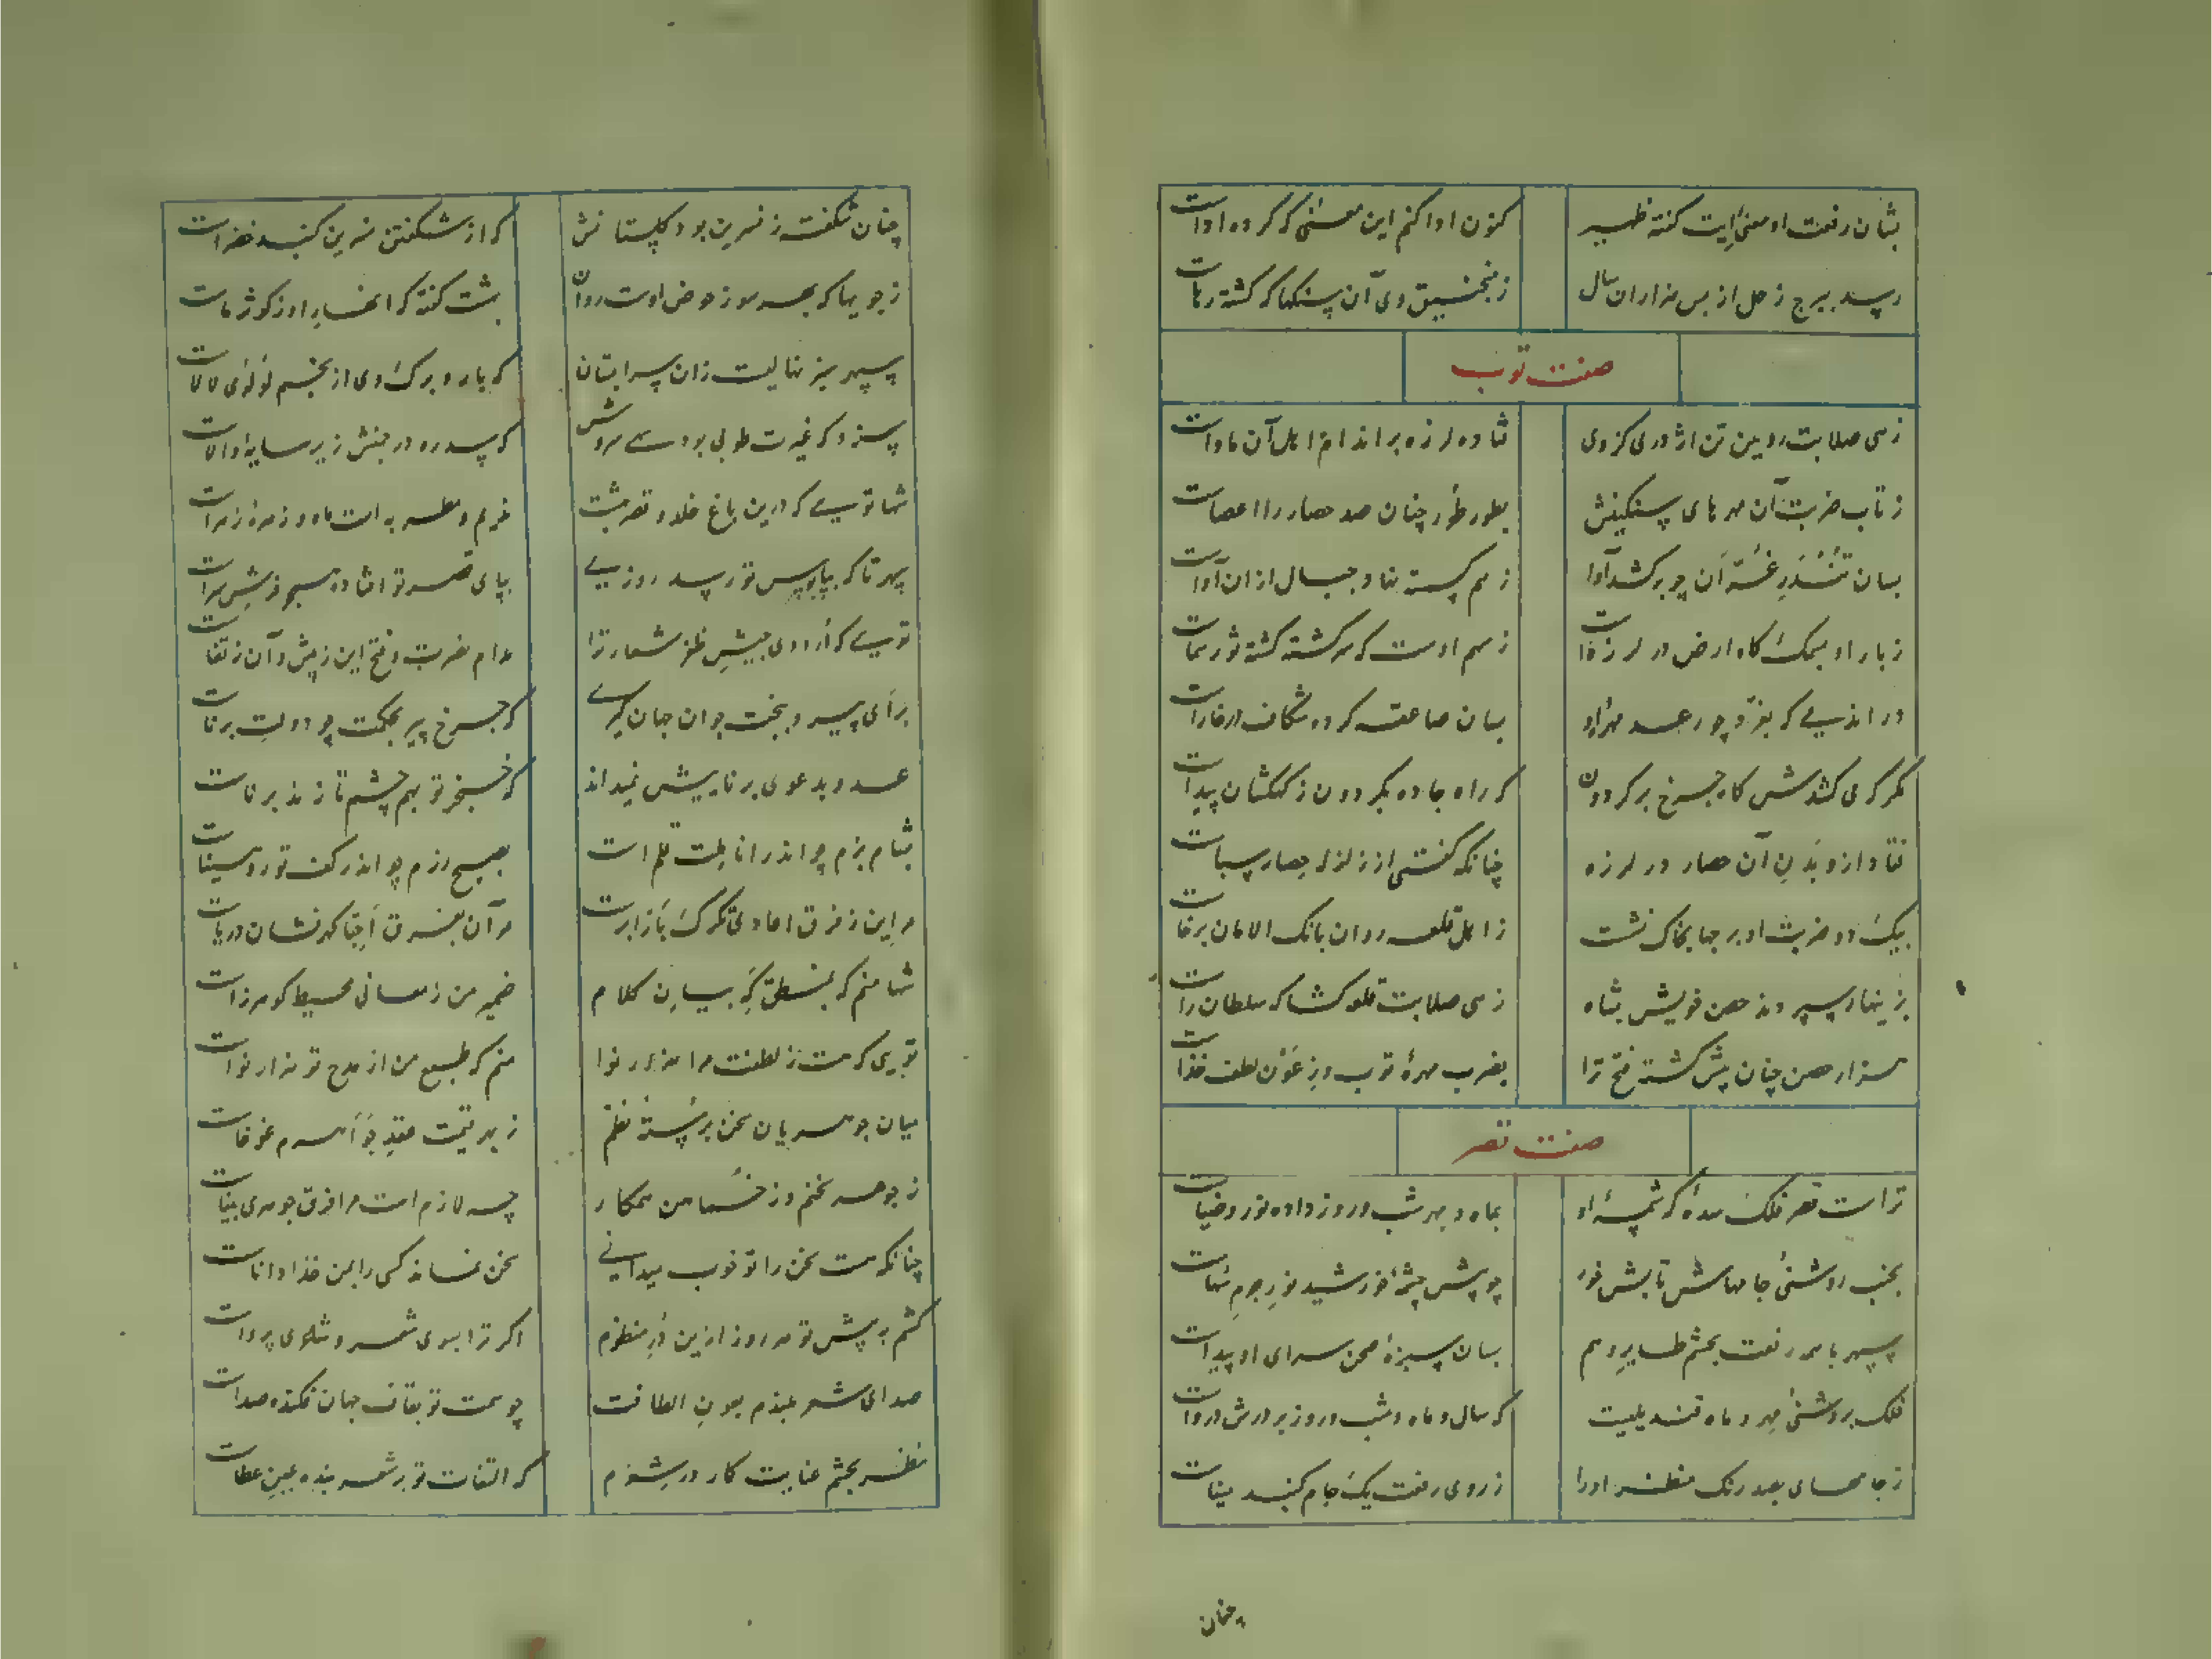 بشان رفعت او معنی‌ایت گفته ظهیر کنون ادا کنم این معنی که کرده اداست
رسد ببرج زحل از پس هزاران سال ز منجنیق وی آن سنگها که گشته رهاست
صفت توپ
زهی صلابت رویین تن اژدری کز وی فتاده لرزه بر اندام اهل آن ماواست
ز تاب ضربت آن مهرهای سنگینش بطور طور چنان صد حصار را اعصاست
بسان تندر غنده آن چو برکشد آوا ز هم گسسته نهاد جبال از ان آواست
ز بار او بسمک گاو ارض در لرزه است ز سهم اوست که سرگشته گشته ثور سماست
در اندمی که بغرد چو رعد مهره او بسان صاعقه کرده شکاف در خاراست
مگر که می کشدش گاو چرخ بر گردون که راه جاده بگردون ز کهکشان پیداست
فتاد ازو بدن آن حصار در لرزه چنانکه گفتی از زلزله حصار سباست
بیک دو ضربت او برجها بخاک نشست ز اهل قلعه روان بانک الامان برخاست
بزینهار سپردند حصن خویش بشاه زهی صلابت قلعه کشا که سلطان راست
هزار حصن چنان پیش گشته فتح ترا بضرب مهرهٔ توپ و ز عون لطف خداست
صفت قصر
تراست قصر فلک سده که شمسهٔ او بماه و مهر شب و روز داده نور و ضیاست
بجنب روشنی جامهاش تابش خور چو پیش چشمهٔ خورشید نور جرم سهاست
سپهر با همه رفعت بچشم طایر وهم بسان سبزهٔ صحن سرای او پیداست
فلک بروشنی مهر و ماه قندیلیست که سال و ماه و شب و روز بر درش درواست
ز جامهای بصد رنک منظر او را ز روی رفعت یک جام گنبد میناست
چنان
چنان شکفت ز نسرین بود گلستانش که از شکفتن نسرین گنبد خضراست
ز جویها که بهر سو ز حوض اوست روان بهشت گفته که انهار او ز کوثر ماست
سپهر سبز نهالیست زان سرابستان که بار و برک وی از نجم لؤلؤی لالاست
سزد که غیرت طوبی بود سهی سروش که سدره در جنبش زیر سایه ادناست
شها تویی که درین باغ خلد و قصر بهشت خرم و مطربه است ماه و زمره زهراست
سپهر تا که بپابوس تو رسد روزی بپای قصر تو افتاده همچو فرش سراست
تویی که از دوی جیش ظفر شعار ترا مدام ضرب و فتح این ز پیش و آن ز قفاست
برأی پیر و بخت جوان جهان گیری که چرخ پیر بحکمت چو دولت برناست
عدو بدعوی برنا ببیش نمیداند که خنجر تو بهم چشم تا زند برناست
بشام بزم چو اندر انامِلت قلم است بصبح رزم چو اندر کف تو رو سیناست
مر آن بفرق احبا گهر فشان دریاست
شها منم که بنسطق گه بیان کلام ضمیر من ز معانی محیط گوهرزاست
تویی که هست ز لطفت مرا هزار نوا منم که طبع من از مدح تو هزار نواست
میان جوهریان سخن برشتهٔ نظم ز بهر قیمت عقد جواهرم غوغاست
ز جوهر سخنم وز خسان من همکار چه لازم است مرا فرق جوهری بیناست
چنانکه هست سخن را تو خوب میدانی سخن نماند کسی را بمن خدا داناست
کشم به پیش تو هر روز ازین در منظوم اگر ترا بسوی شعر و شاعری پرواست
صدای شعر بلندم بعون الطافت چو صیت تو بقاف جهان فکنده صداست
نظر بچشم عنایت گار در شعرم که التفات تو بر شعر بنده عین عطاست